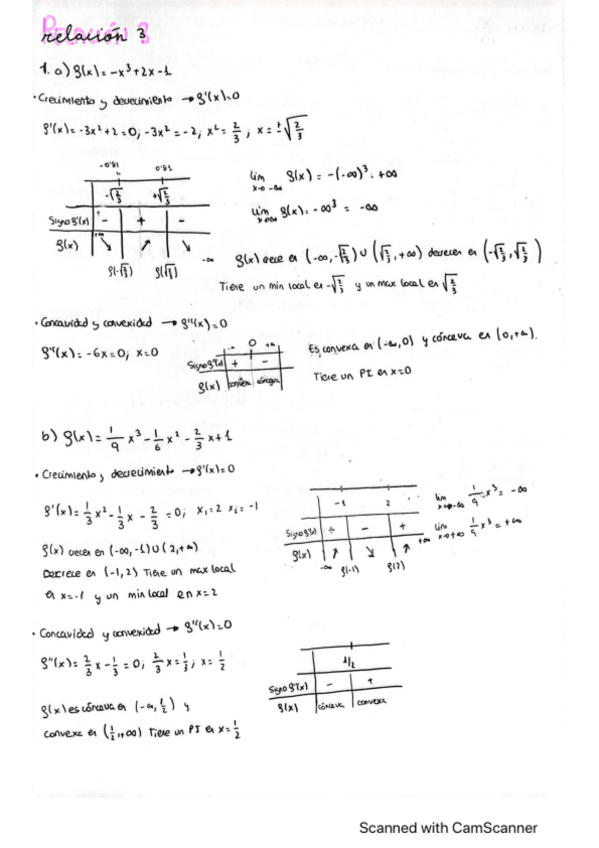 relación 3
1. a) f(x) = -x³+2x-1
• Crecimiento y decrecimiento → f'(x)=0
f'(x) = -3x²+2=0; -3x²=-2; x²=2/3; x=±√(2/3)
-0.81 0.81
-√(2/3) +√(2/3)
Signo f'(x) - + -
f(x) +∞ ↘ ↗ ↘ -∞
f(-√(2/3)) f(√(2/3))
lim x→-∞ f(x) = -(-∞)³ = +∞
lim x→+∞ f(x) = -∞³ = -∞
f(x) crece en (-∞,-√(2/3)) ∪ (√(2/3),+∞) decrece en (-√(2/3),√(2/3))
Tiene un min local en -√(2/3) y un max local en √(2/3)
• Concavidad y convexidad → f''(x)=0
f''(x) = -6x=0; x=0
-∞ 0 +∞
Signo f''(x) + -
f(x) convexa cóncava
Es convexa en (-∞,0) y cóncava en (0,+∞).
Tiene un PI en x=0
b) f(x) = 1/9 x³ - 1/6 x² - 2/3 x + 1
• Crecimiento y decrecimiento → f'(x)=0
f'(x) = 1/3 x² - 1/3 x - 2/3 = 0; x₁=2 x₂=-1
f(x) crece en (-∞,-1) ∪ (2,+∞)
Decrece en (-1,2) Tiene un max local
en x=-1 y un min local en x=2
-1 2
Signo f'(x) + - +
f(x) ↗ ↘ ↗ +∞
-∞ f(-1) f(2)
lim x→-∞ 1/9 x³ = -∞
lim x→+∞ 1/9 x³ = +∞
• Concavidad y convexidad → f''(x)=0
f''(x) = 2/3 x - 1/3 = 0; 2/3 x = 1/3; x = 1/2
1/2
Signo f''(x) - +
f(x) cóncava convexa
f(x) es cóncava en (-∞,1/2) y
convexa en (1/2,+∞) Tiene un PI en x=1/2
Scanned with CamScanner